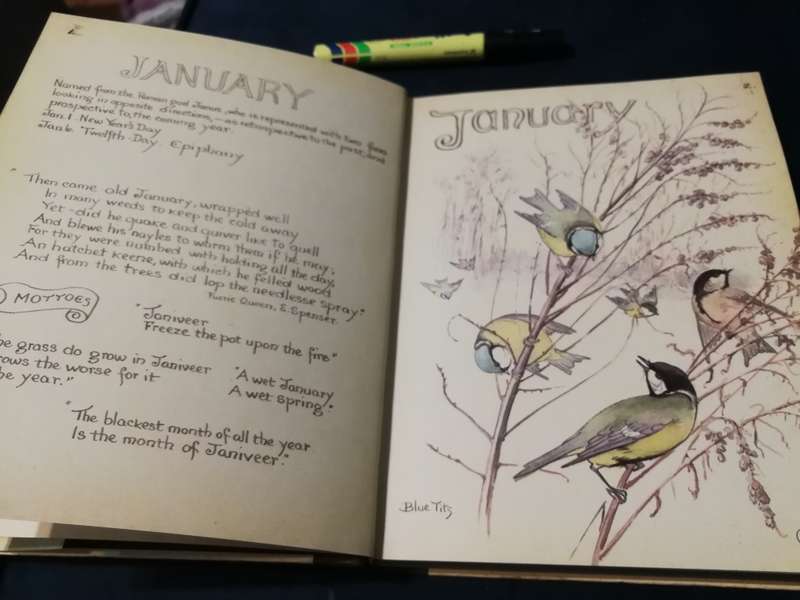 JANUARY
Named from the Roman god Janus, who is represented with two faces
looking in opposite directions, – as retrospective to the past, and
prospective to the coming year.
Jan. 1. New Year's Day
Jan 6. Twelfth - Day. Epiphany
"Then came old January, wrapped well
In many weeds to keep the cold away
Yet did he quake and quiver like to quell
And blowe his nayles to warm them if he may;
For they were numbed with holding all the day,
An hatchet keene, with which he felled wood
And from the trees did lop the needlesse spray."
Faerie Queen, E. Spenser.
MOTTOES
"Janiveer
Freeze the pot upon the fire"
he grass do grow in Janiveer
rows the worse for it
he year."
"A wet January
A wet Spring".
"The blackest month of all the year
Is the month of Janiveer."
January
Blue Tits